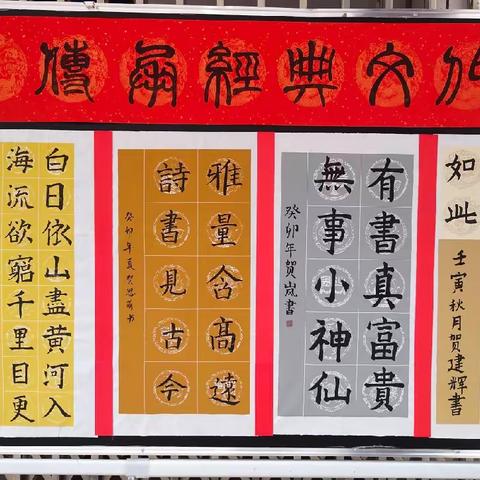 傳承經典文化
如此
壬寅秋月賀建輝書
有書真富貴
無事小神仙
癸卯年賀岚書
雅量含高遠
詩書見古今
癸卯年夏
白日依山盡黄河入
海流欲窮千里目更